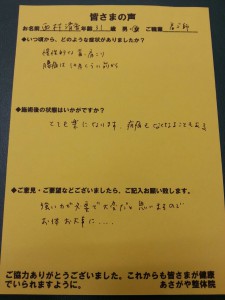 皆さまの声
お名前 西村 年齢 歳 男・女 ご職業
◆いつ頃から、どのような症状がありましたか?
慢性的な首・肩こり
腰痛は
◆施術後の状態はいかがですか?
とても楽になります。
◆ご意見・ご要望などございましたら、ご記入お願い致します。
強い力が必要で大変だと思いますので
お体お大事に……
ご協力ありがとうございました。これからも皆さまが健康
でいられますように。
あさがや整体院